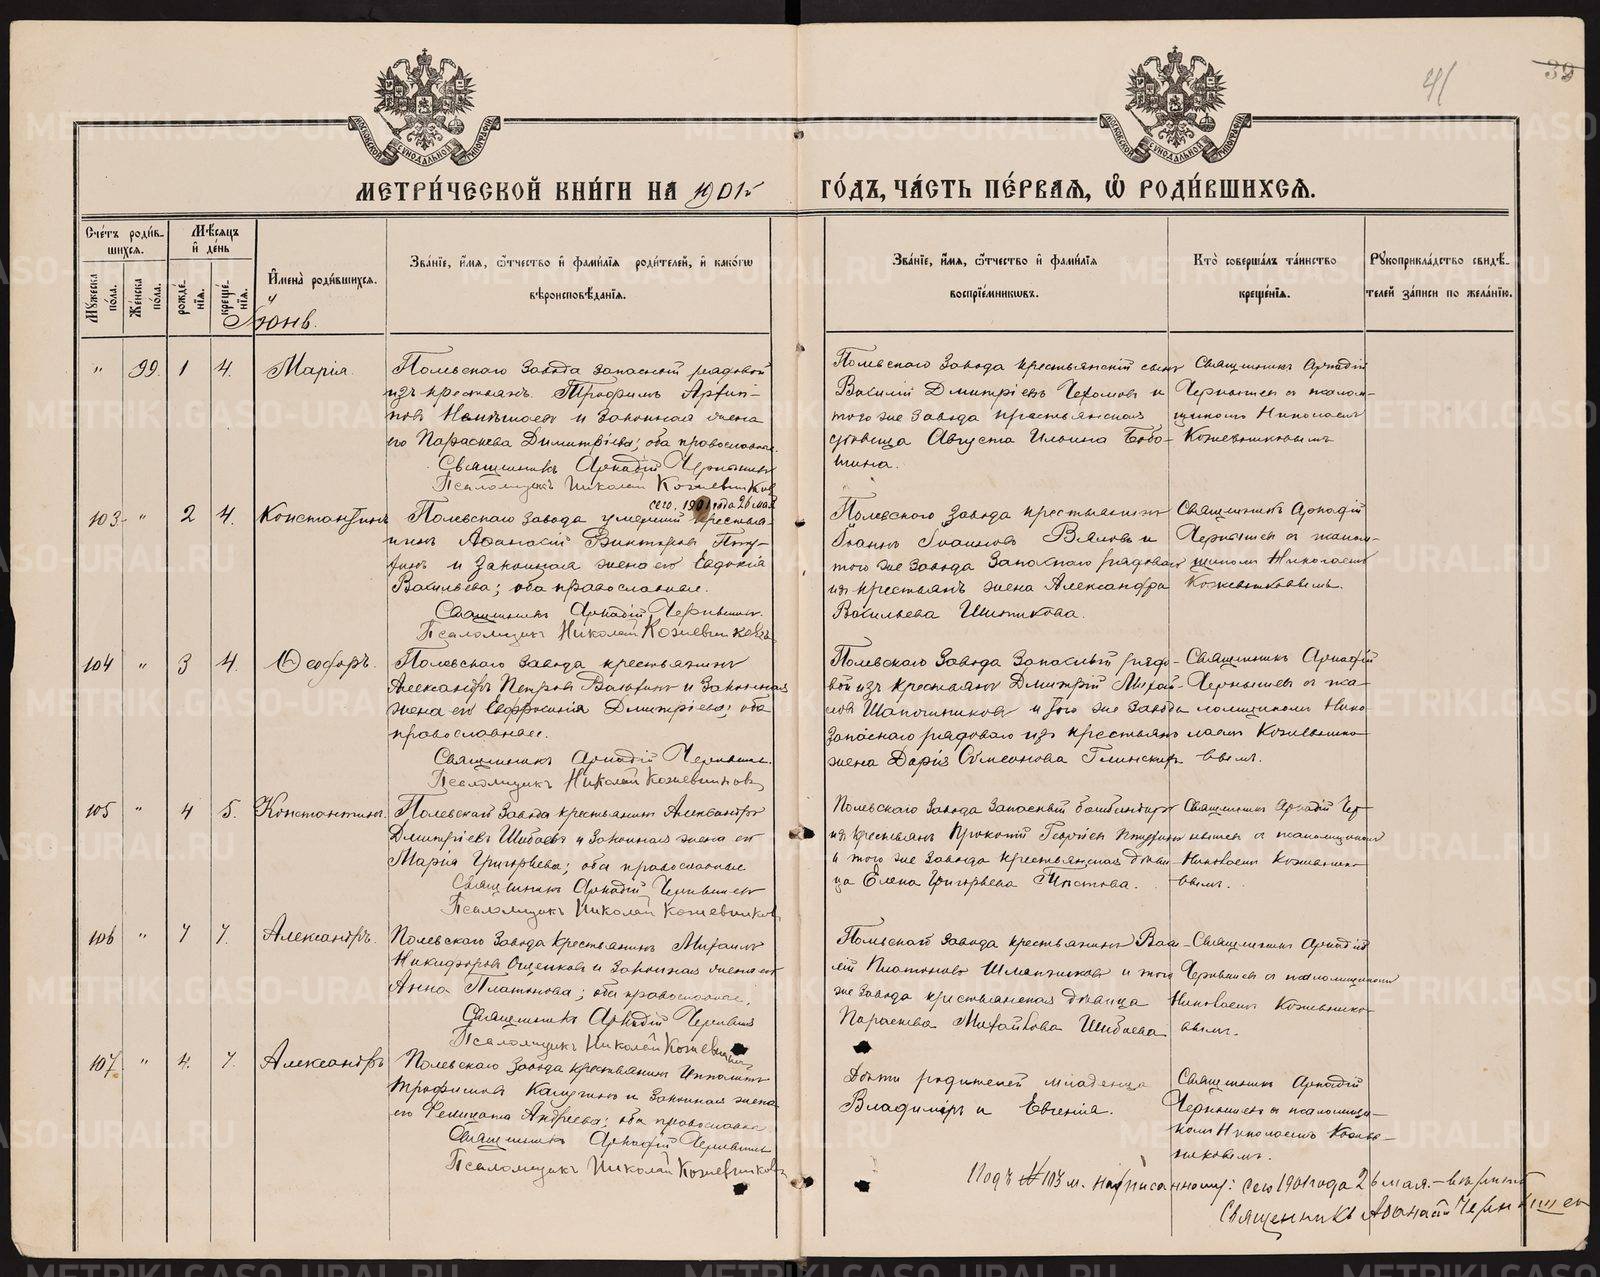 41
39
МЕТРИ́ЧЕСКОЙ КНИ́ГИ НА 1901й
ГО́ДЪ, ЧА́СТЬ ПЕ́РВАЯ, Ѡ РОДИ́ВШИХСЯ.
Сче́тъ роди́в-
шихся.
Му́жеска по́ла.
Же́нска по́ла.
Мѣ́сяцъ и де́нь
рожде́-
нїя.
креще́-
нїя.
Имена̀ роди́вшихся.
Зва́нїе, и́мя, о́тчество и фами́лїя роди́телей, и како́гѡ
вѣроисповѣ́данїя.
Зва́нїе, и́мя, о́тчество и фами́лїя
воспрїе́мниковъ.
Кто̀ соверша́лъ та́инство
креще́нїя.
Рукоприкла́дство свидѣ́-
телей за́писи по жела́нїю.
Іюнь.
" 99. 1 4. Марія.
Полевскаго Завода запасный рядовой
изъ крестьянъ Трофимъ
и законная жена
его Параскева Димитріева; оба православные.
Священникъ Аркадій Чернышевъ
Псаломщикъ Николай Кожевниковъ
Полевскаго Завода крестьянскій сынъ
Василій Дмитріевъ и
того же завода крестьянская
дѣвица Августа Ильина Бабо-
шина.
Священникъ Аркадій
Чернышевъ съ псалом-
щикомъ Николаемъ
Кожевниковымъ
103. " 2 4. Константинъ
сего 1901 года 26 мая
Полевскаго Завода умершій крестья-
нинъ Афанасій Викторовъ Пту-
хинъ и законная жена его Евдокія
Васильева; оба православные.
Священникъ Аркадій Чернышевъ.
Псаломщикъ Николай Кожевниковъ
Полевского завода крестьянинъ
Іоаннъ Іоанновъ Вяловъ и
того же завода запаснаго рядоваго
изъ крестьянъ жена Александра
Васильева
Священникъ Аркадій
Чернышевъ съ псалом-
щикомъ Николаемъ
Кожевниковымъ.
104 " 3 4. Ѳеодоръ.
Полевскаго Завода крестьянинъ
Александръ Петровъ и законная
жена его Евфросинія Дмитріева; оба
православные.
Священникъ Аркадій Чернышевъ.
Псаломщикъ Николай Кожевниковъ
Полевскаго Завода запасный рядо-
вой изъ крестьянъ Дмитрій Михай-
ловъ Шапочниковъ и того же завода
запаснаго рядоваго изъ крестьянъ
жена Дарія Симеонова Глинскихъ
Священникъ Аркадій
Чернышевъ съ пса-
ломщикомъ Нико-
лаемъ Кожевнико-
вымъ.
105 " 4 5. Константинъ.
Полевскаго Завода крестьянинъ Александръ
Дмитріевъ Шибаевъ и законная жена его
Марія Григорьева; оба православные
Священникъ Аркадій Чернышевъ
Псаломщикъ Николай Кожевниковъ
Полевскаго Завода запасный бомбардиръ
изъ крестьянъ Прокопій Георгіевъ
и того же завода крестьянская дѣви-
ца Елена Григорьева
Священникъ Аркадій Чер-
нышевъ съ псаломщикомъ
Николаемъ Кожевнико-
вымъ.
106 " 7 7. Александръ.
Полевскаго Завода крестьянинъ Михаилъ
Никифоровъ и законная жена его
Анна Платонова; оба православные.
Священникъ Аркадій Чернышевъ
Псаломщикъ Николай Кожевниковъ
Полевскаго завода крестьянинъ Васи-
лій Платоновъ и того
же завода крестьянская дѣвица
Параскева Михайлова Шибаева
Священникъ Аркадій
Чернышевъ съ псаломщикомъ
Николаемъ Кожевнико-
вымъ.
107. " 4. 7. Александръ
Полевскаго Завода крестьянинъ Ипполитъ
Трофимовъ Калугинъ и законная жена
его Фелицата Андреева; оба православные
Священникъ Аркадій Чернышевъ
Псаломщикъ Николай Кожевниковъ
Дѣти родителей младенца
Владиміръ и Евгенія.
Священникъ Аркадій
Чернышевъ съ псаломщи-
комъ Николаемъ Кожев-
никовымъ.
Подъ № 103 м. написанному: сего 1901 года 26 мая.
Священникъ Чернышевъ